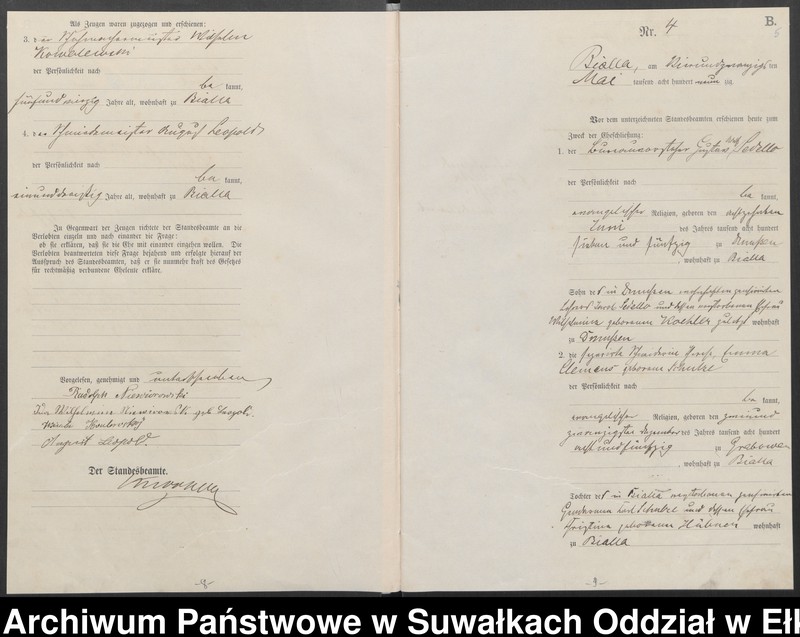 Als Zeugen waren zugezogen und erschienen:
3. der Schuhmachermeister Wilhelm
Kowalewski
der Persönlichkeit nach
be kannt,
fünfundvierzig Jahre alt, wohnhaft zu Bialla
4. der Schmiedemeister August Leopold
der Persönlichkeit nach
be kannt,
einunddreißig Jahre alt, wohnhaft zu Bialla
In Gegenwart der Zeugen richtete der Standesbeamte an die
Verlobten einzeln und nach einander die Frage:
ob sie erklären, daß sie die Ehe mit einander eingehen wollen. Die
Verlobten beantworteten diese Frage bejahend und erfolgte hierauf der
Ausspruch des Standesbeamten, daß er sie nunmehr kraft des Gesetzes
für rechtmäßig verbundene Eheleute erkläre.
Vorgelesen, genehmigt und unterschrieben
Rudolph
Wilhelmine geb. Leopold.
August Leopold.
Der Standesbeamte.
-8-
B.
5
Nr. 4
Bialla, am Vierundzwanzigs ten
Mai tausend acht hundert neun zig.
Vor dem unterzeichneten Standesbeamten erschienen heute zum
Zweck der Eheschließung:
1. der Bureauvorsteher Gustav Sedello
der Persönlichkeit nach
be kannt,
evangelischer Religion, geboren den achtzehnten
Juni des Jahres tausend acht hundert
sieben und fünfzig zu Drußen
, wohnhaft zu Bialla
Sohn des in
Lehrers Sedello und dessen verstorbenen Ehefrau
Wilhelmine geborenen Koehler zuletzt wohnhaft
zu
2. die separirte Emma
Clemens geborene Schulze
der Persönlichkeit nach
be kannt,
evangelischer Religion, geboren den zweiund
zwanzigsten Dezember des Jahres tausend acht hundert
achtundfünfzig zu Grabowen
, wohnhaft zu Bialla
Tochter des in Bialla verstorbenen pensionirten
Gendarm Karl Schulze und dessen Ehefrau
geborenen wohnhaft
zu Bialla
-9-
Archiwum Państwowe w Suwałkach Oddział w Ełk